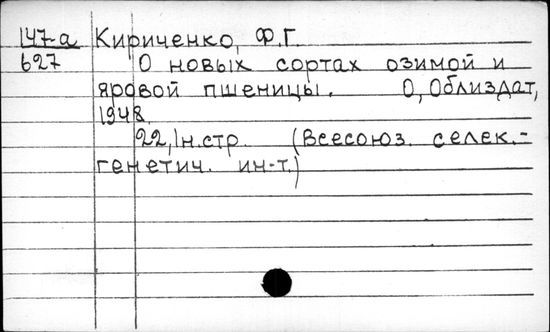 147-а Кириченко, Ф.Г.
627 О новых сортах озимой и
яровой пшеницы. О, Облиздат,
1948.
22, 1н.стр. (Всесоюз. селек.-
генетич. ин-т.)